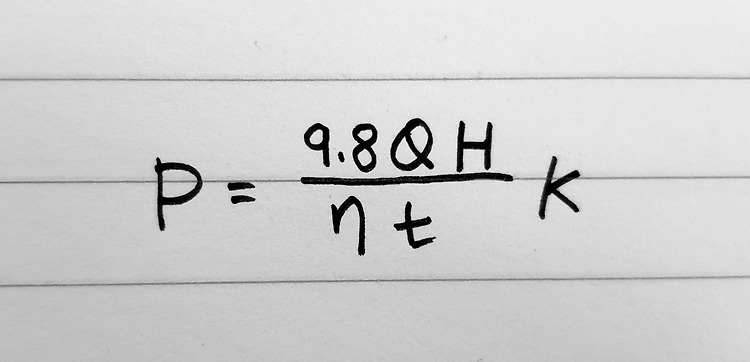 P = 9.8QH / ηt K